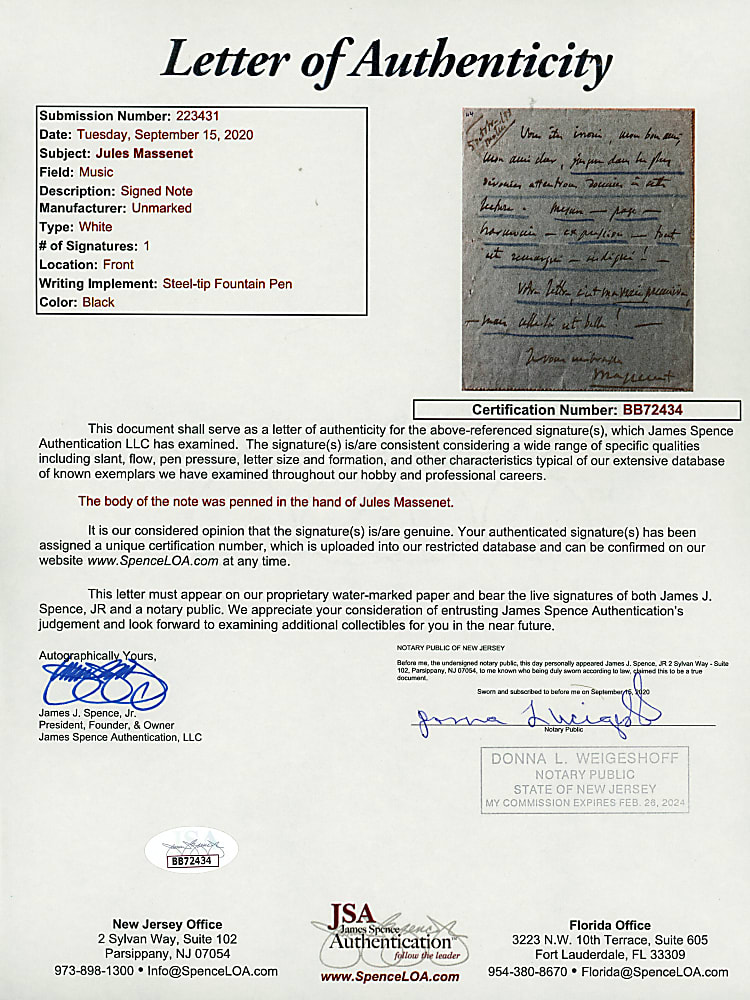 Letter of Authenticity
Submission Number: 223431
Date: Tuesday, September 15, 2020
Subject: Jules Massenet
Field: Music
Description: Signed Note
Manufacturer: Unmarked
Type: White
# of Signatures: 1
Location: Front
Writing Implement: Steel-tip Fountain Pen
Color: Black
mon ami
page
expression
et remarque
Votre lettre
Je vous embrasse
Massenet
Certification Number: BB72434
This document shall serve as a letter of authenticity for the above-referenced signature(s), which James Spence
Authentication LLC has examined. The signature(s) is/are consistent considering a wide range of specific qualities
including slant, flow, pen pressure, letter size and formation, and other characteristics typical of our extensive database
of known exemplars we have examined throughout our hobby and professional careers.
The body of the note was penned in the hand of Jules Massenet.
It is our considered opinion that the signature(s) is/are genuine. Your authenticated signature(s) has been
assigned a unique certification number, which is uploaded into our restricted database and can be confirmed on our
website www.SpenceLOA.com at any time.
This letter must appear on our proprietary water-marked paper and bear the live signatures of both James J.
Spence, JR and a notary public. We appreciate your consideration of entrusting James Spence Authentication's
judgement and look forward to examining additional collectibles for you in the near future.
Autographically Yours,
James J. Spence, Jr.
President, Founder, & Owner
James Spence Authentication, LLC
NOTARY PUBLIC OF NEW JERSEY
Before me, the undersigned notary public, this day personally appeared James J. Spence, JR 2 Sylvan Way - Suite
102, Parsippany, NJ 07054, to me known who being duly sworn according to law, claimed this to be a true
document.
Sworn and subscribed to before me on September 15, 2020
Donna L Weigeshoff
Notary Public
DONNA L. WEIGESHOFF
NOTARY PUBLIC
STATE OF NEW JERSEY
MY COMMISSION EXPIRES FEB. 26, 2024
JSA
BB72434
New Jersey Office
2 Sylvan Way, Suite 102
Parsippany, NJ 07054
973-898-1300 • Info@SpenceLOA.com
JSA
James Spence
Authentication
follow the leader
www.SpenceLOA.com
Florida Office
3223 N.W. 10th Terrace, Suite 605
Fort Lauderdale, FL 33309
954-380-8670 • Florida@SpenceLOA.com